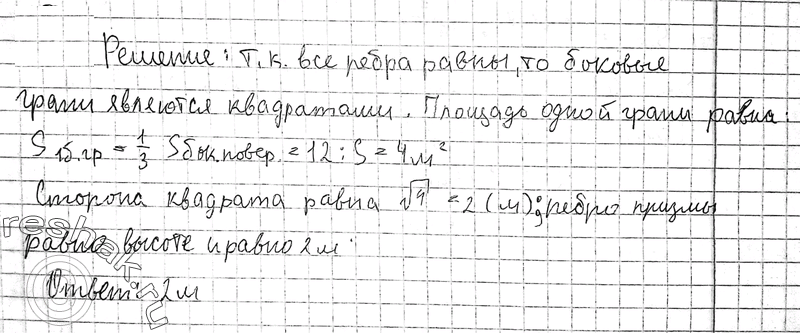 Решение: т.к. все ребра равны, то боковые
грани являются квадратами. Площадь одной грани равна:
S 1б.гр = 1/3 S бок.повер. = 12 : 3 = 4 м²
Сторона квадрата равна √4 = 2 (м); ребро призмы
равно высоте и равно 2 м.
Ответ: 2 м
reshak